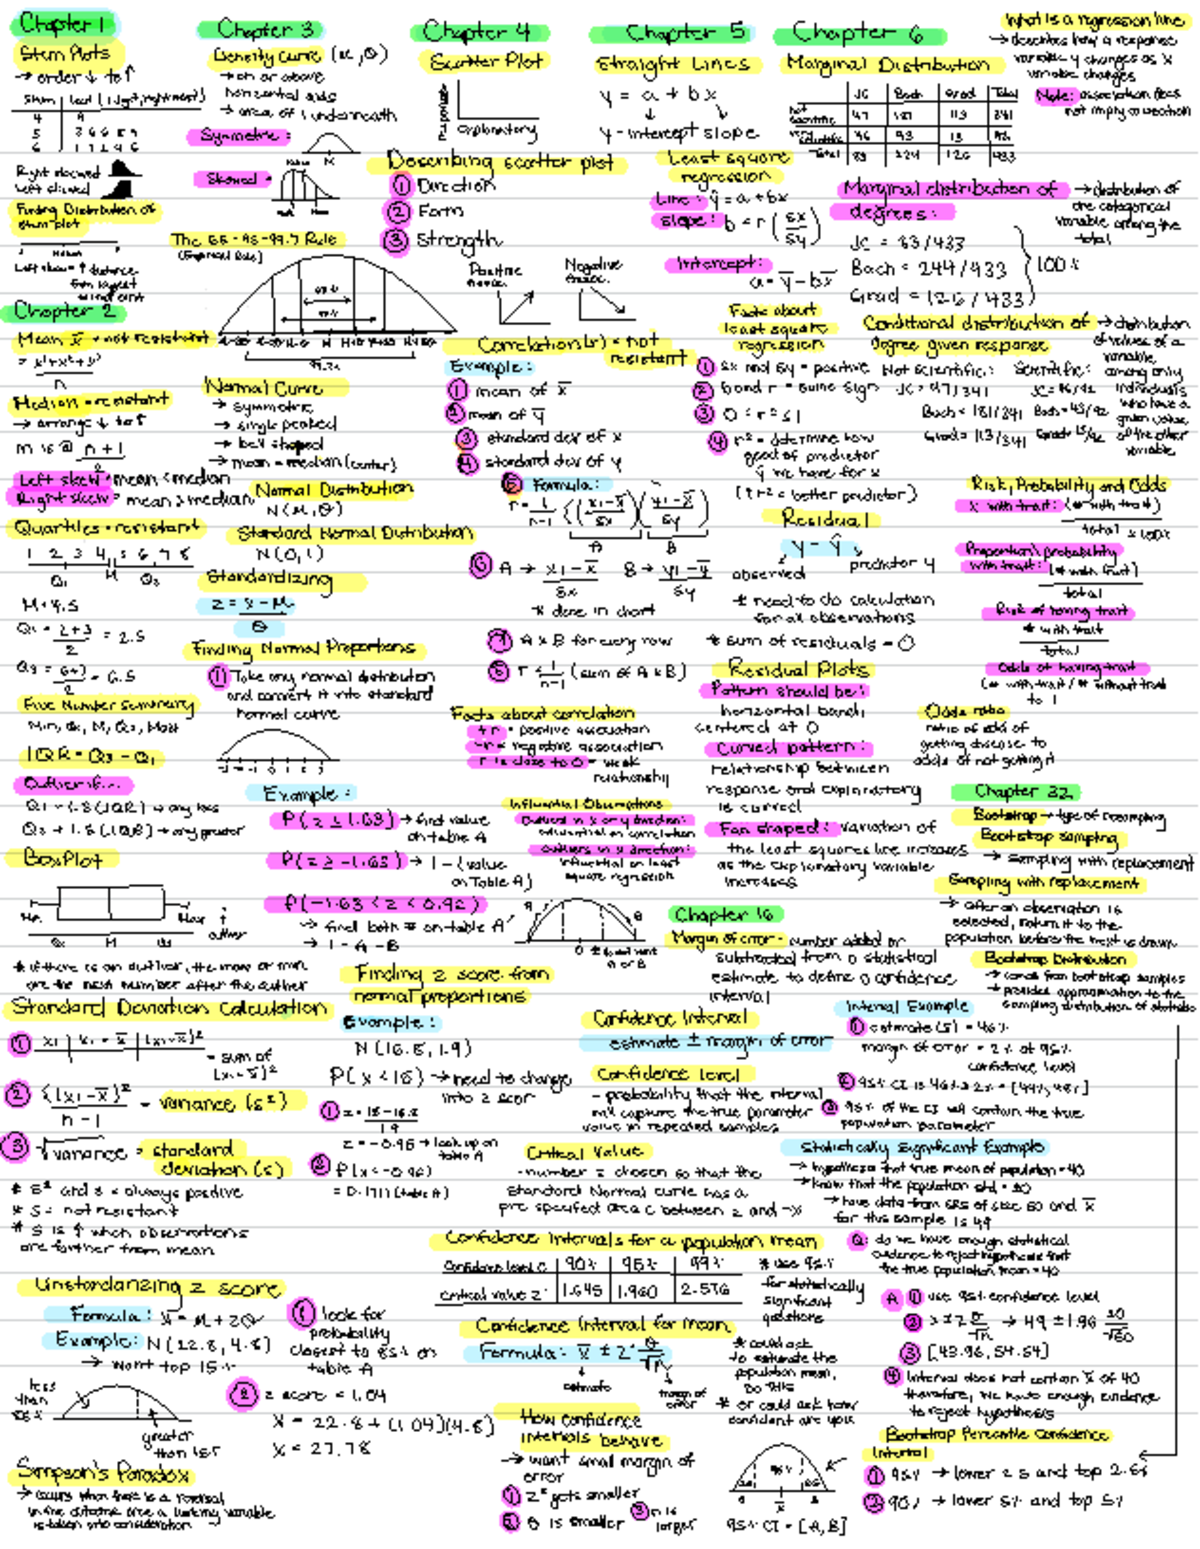 Chapter 1
Stem Plots
→ order ↓ to ↑
Stem | Leaf (1 digit, rightmost)
4
5
6
Right skewed
Left skewed
Finding Distribution of
stem plot
Chapter 2
Mean x̄ = not resistant
n
Median = resistant
→ arrange ↓ to ↑
m is @ n + 1
2
Left skew = mean < median
Right skew = mean > median
Quartiles = resistant
1 2 3 4 5 6 7 8
Q1 M Q3
M = 4.5
Q1 = 2+3 = 2.5
2
Q3 = 6+7 = 6.5
2
Five Number Summary
Min, Q1, M, Q3, Max
IQR = Q3 - Q1
Outlier if...
Q1 - 1.5(IQR) → any less
Q3 + 1.5(IQR) → any greater
BoxPlot
Min Max
Q1 M Q3 outlier
* if there is an outlier, the max or min
are the next number after the outlier
Standard Deviation Calculation
① x1 | x1 - x̄ | (x1-x̄)²
= sum of
(x1-x̄)²
② Σ(x1-x̄)² = variance (s²)
n - 1
③ √variance = standard
deviation (s)
* s² and s = always positive
* s = not resistant
* s is ↑ when observations
are farther from mean
Unstandardizing z score
Formula: x = M + zθ
Example: N(22.8, 4.8)
→ want top 15%
less
than
85%
greater
than 15%
① look for
probability
closest to 85% on
table A
② z score = 1.04
x = 22.8 + (1.04)(4.8)
x = 27.78
Simpson's Paradox
→ occurs when there is a reversal
in the outcome once a lurking variable
is taken into consideration
Chapter 3
Density Curve (M, θ)
→ on or above
horizontal axis
→ area of 1 underneath
Symmetric:
Skewed:
The 68-95-99.7 Rule
(Empirical Rule)
Normal Curve
→ symmetric
→ single peaked
→ bell shaped
→ mean = median (center)
Normal Distribution
N(M, θ)
Standard Normal Distribution
N(0, 1)
Standardizing
z = x - M
θ
Finding Normal Proportions
① Take any normal distribution
and convert it into standard
normal curve
Example:
P(z ≤ 1.63) → find value
on table A
P(z ≥ -1.63) → 1 - (value
on Table A)
P(-1.63 < z < 0.92)
→ find both # on table A
→ 1 - A - B
Finding z score from
normal proportions
Example:
N(16.8, 1.9)
P(x < 15) → need to change
into z score
① z = 15 - 16.8
1.9
z = -0.95 → look up on
table A
② P(x < -0.95)
= 0.1711 (table A)
Chapter 4
Scatter Plot
Response
Explanatory
Describing scatter plot
① Direction
② Form
③ Strength
Positive
Negative
Correlation (r) = not
resistant
Example:
① mean of x̄
② mean of ȳ
③ standard dev of x
④ standard dev of y
⑤ Formula:
r = 1/(n-1) Σ((x1-x̄)/sx)((y1-ȳ)/sy)
A B
⑥ A → x1-x̄ B → y1-ȳ
sx sy
* done in chart
⑦ A x B for every row
⑧ r = 1/(n-1) (sum of A x B)
Facts about correlation
+r = positive association
-r = negative association
r is close to 0 = weak
relationship
Influential Observations
Outliers in x or y direction:
influential on correlation
Outliers in x direction:
influential on least
square regression
Chapter 5
Straight Lines
y = a + bx
y-intercept slope
Least square
regression
Line: ŷ = a + bx
Slope: b = r (sx/sy)
Intercept:
a = ȳ - bx̄
Facts about
least square
regression
① sx and sy = positive
② b and r = same sign
③ 0 ≤ r² ≤ 1
④ r² = determine how
good of predictor
ŷ we have for x
(↑r² = better predictor)
Residual
y - ŷ
observed predictor y
* need to do calculation
for all observations
* sum of residuals = 0
Residual Plots
Pattern should be:
horizontal band,
centered at 0
Curved pattern:
relationship between
response and explanatory
is curved
Fan shaped: variation of
the least squares line increases
as the explanatory variable
increases
Chapter 16
Margin of error - number added or
subtracted from a statistical
estimate to define a confidence
interval
Confidence Interval
estimate ± margin of error
Confidence level
- probability that the interval
will capture the true parameter
value in repeated samples
Critical Value
- number z chosen so that the
Standard Normal curve has a
pre specified area C between z and -x
Confidence Intervals for a population mean
Confidence level C | 90% | 95% | 99%
critical value z* | 1.645 | 1.960 | 2.576
* use 95%
for statistically
significant
questions
Confidence Interval for mean
Formula: x̄ ± z* θ/√n
estimate margin of
error
* could ask
to estimate the
population mean,
do this
* or could ask how
confident are you
How confidence
intervals behave
→ want small margin of
error
① z* gets smaller
② θ is smaller
③ n is
larger
95%
95% CI = [A, B]
Chapter 6
Marginal Distribution
JC | Bach | Grad | Total
Not scientific | 47 | 181 | 113 | 341
Scientific
Total | 83 | 224 | 126 | 433
Marginal distribution of
degrees:
→ distribution of
one categorical
variable among the
total
JC = 83/433
Bach = 244/433
Grad = (126/433)
100%
Conditional distribution of
degree given response
→ distribution
of values of a
variable
among only
individuals
who have a
given value
of the other
variable
Not Scientific: Scientific:
JC = 47/341
Bach = 181/341
Grad = 113/341
What is a regression line
→ describes how a response
variable y changes as x
variable changes
Note: association does
not imply causation
Risk, Probability and Odds
% with trait: (# with trait)
total x 100%
Proportion/probability
with trait: (# with trait)
total
Risk of having trait
# with trait
total
Odds of having trait
(# with trait / # without trait
to 1
Odds ratio
ratio of odds of
getting disease to
odds of not getting it
Chapter 32
Bootstrap → type of resampling
Bootstrap sampling
→ sampling with replacement
Sampling with replacement
→ after an observation is
selected, return it to the
population before the next is drawn
Bootstrap Distribution
→ comes from bootstrap samples
→ provides approximation to the
sampling distribution of statistic
Interval Example
① estimate (s) = 46%
margin of error = 2% at 95%
confidence level
② 95% CI is 46% ± 2% = [44%, 48%]
③ 95% of the CI will contain the true
population parameter
Statistically Significant Example
→ hypothesis that true mean of population = 40
→ know that the population std = 20
→ have data from SRS of size 50 and x̄
for this sample is 49
Q: do we have enough statistical
evidence to reject hypothesis that
the true population mean = 40
A ① use 95% confidence level
② → 49 ± 1.96 20/√50
③ [43.96, 54.54]
④ Interval does not contain x̄ of 40
therefore, we have enough evidence
to reject hypothesis
Bootstrap Percentile Confidence
Interval
① 95% → lower 2.5 and top 2.5%
② 90% → lower 5% and top 5%